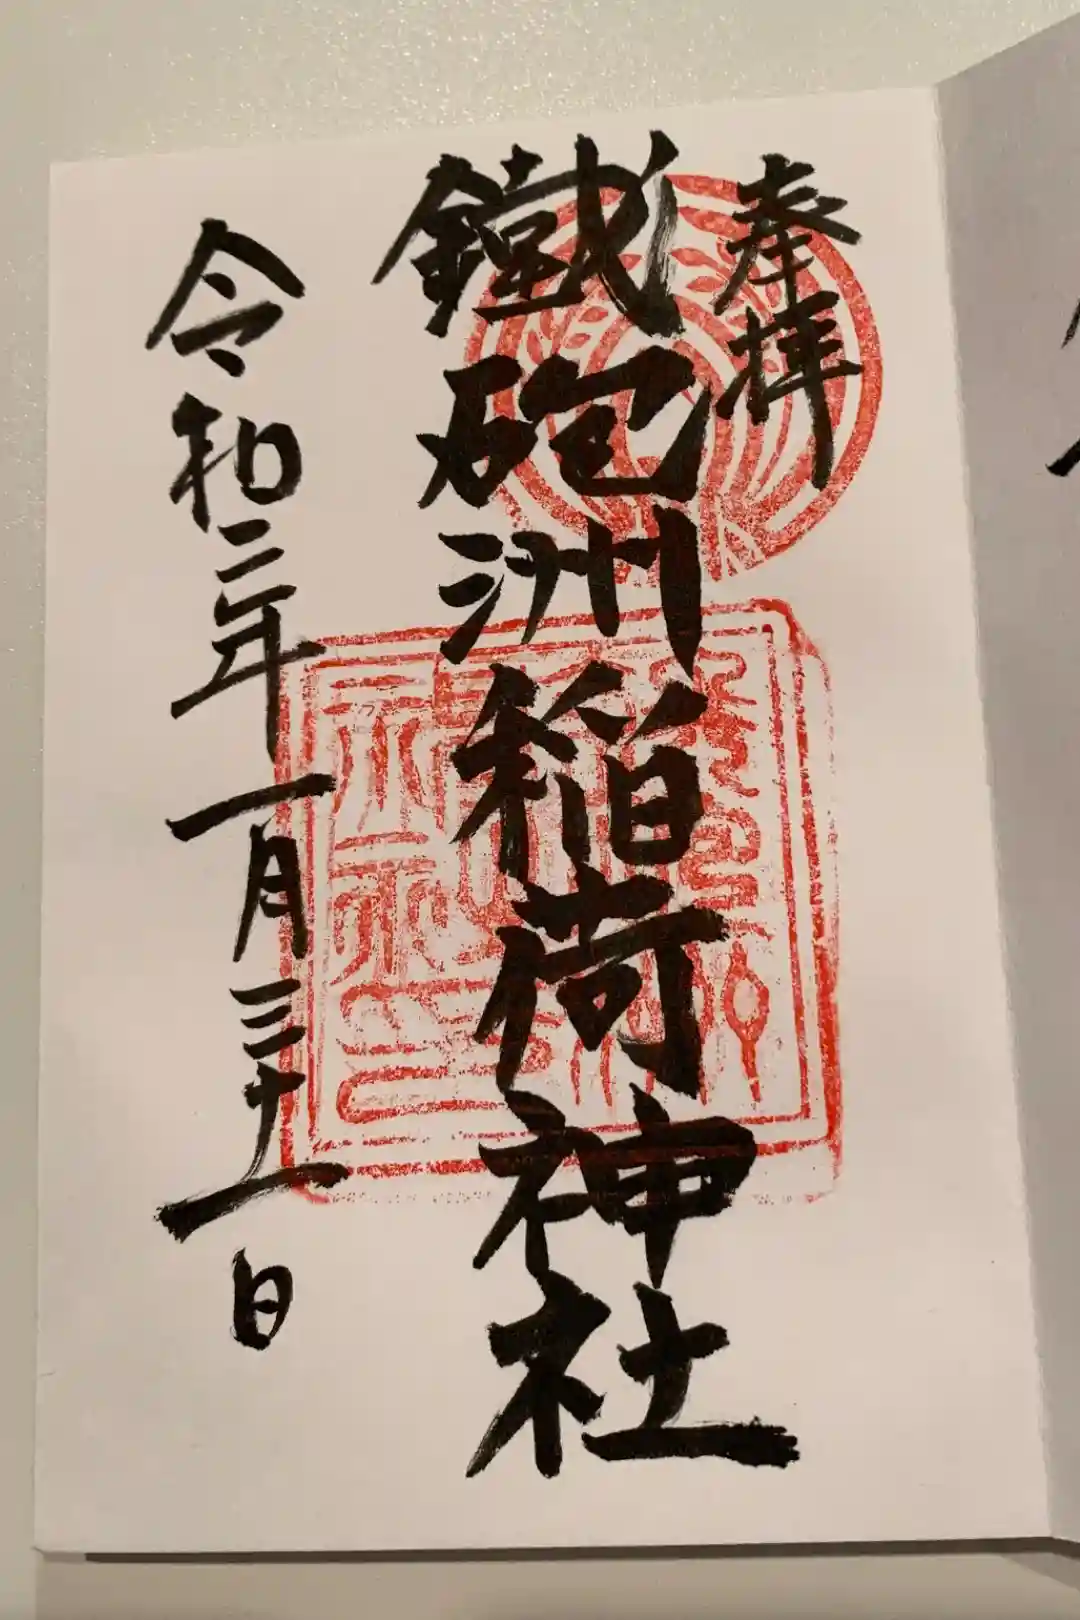 奉拝
鐵砲洲稲荷神社
令和二年一月三十一日